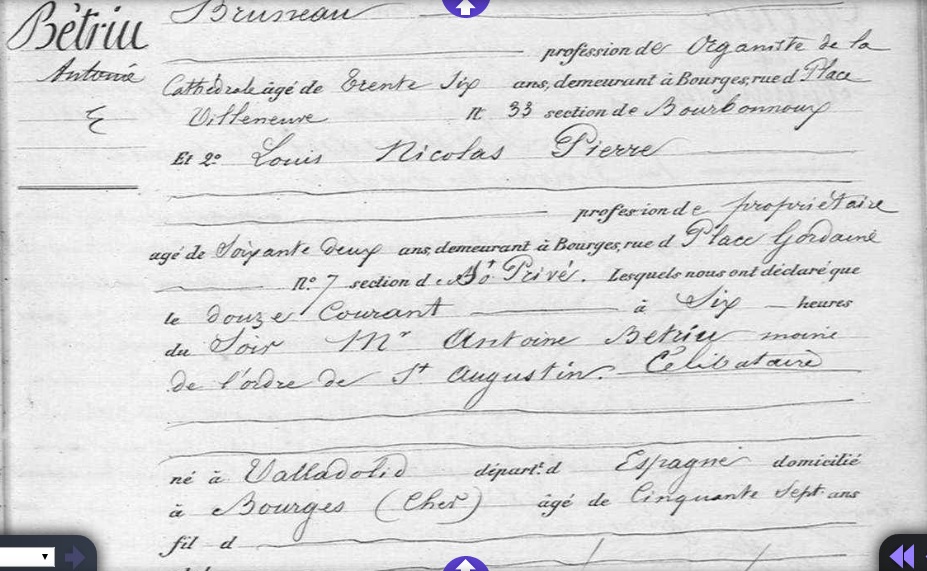 Bétriu
Antoine
Bruneau
profession de Organiste de la
Cathédrale âgé de Trente Six ans, demeurant à Bourges, rue d Place
Villeneuve N. 33 section de Bourbonnoux
Et 2º Louis Nicolas Pierre
profession de propriétaire
agé de Soixante deux ans, demeurant à Bourges, rue d Place Gordaine
N.º 7 section d St Privé. Lesquels nous ont déclaré que
le douze Courant à Six heures
du Soir Mr Antoine Betriu moine
de l'ordre de St Augustin. Célibataire
né à Valladolid départ.t d Espagne domicilié
à Bourges (Cher) âgé de Cinquante Sept ans
fil d